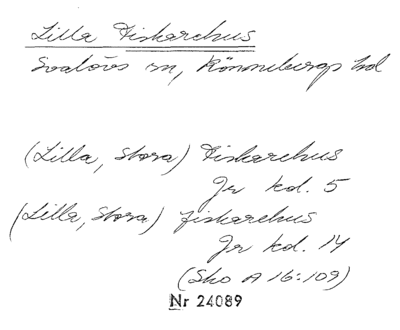 Lilla Fiskarehus
Svalövs sn, Rönnebergs hd
(Lilla, Stora) Fiskarehus
Jr kd. 5
(Lilla, Stora) fiskarehus
Jr kd. 14
(Sko A 16:109)
Nr 24089